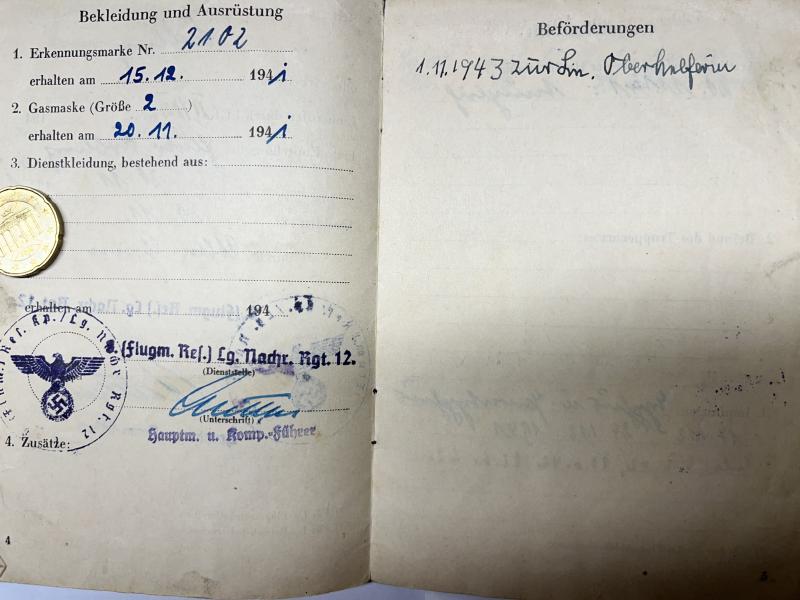 Bekleidung und Ausrüstung
1. Erkennungsmarke Nr. 2102
erhalten am 15.12. 1941
2. Gasmaske (Größe 2 )
erhalten am 20.11. 1941
3. Dienstkleidung, bestehend aus:
erhalten am 194
(Flugm. Res.) Lg. Nachr. Rgt. 12.
(Dienststelle)
(Unterschrift)
Hauptm. u. Komp.-Führer
4. Zusätze:
Res. Kp./Lg. Nachr. Rgt. 12
4
Beförderungen
1.11.1943 zur Ln. Oberhelferin
5